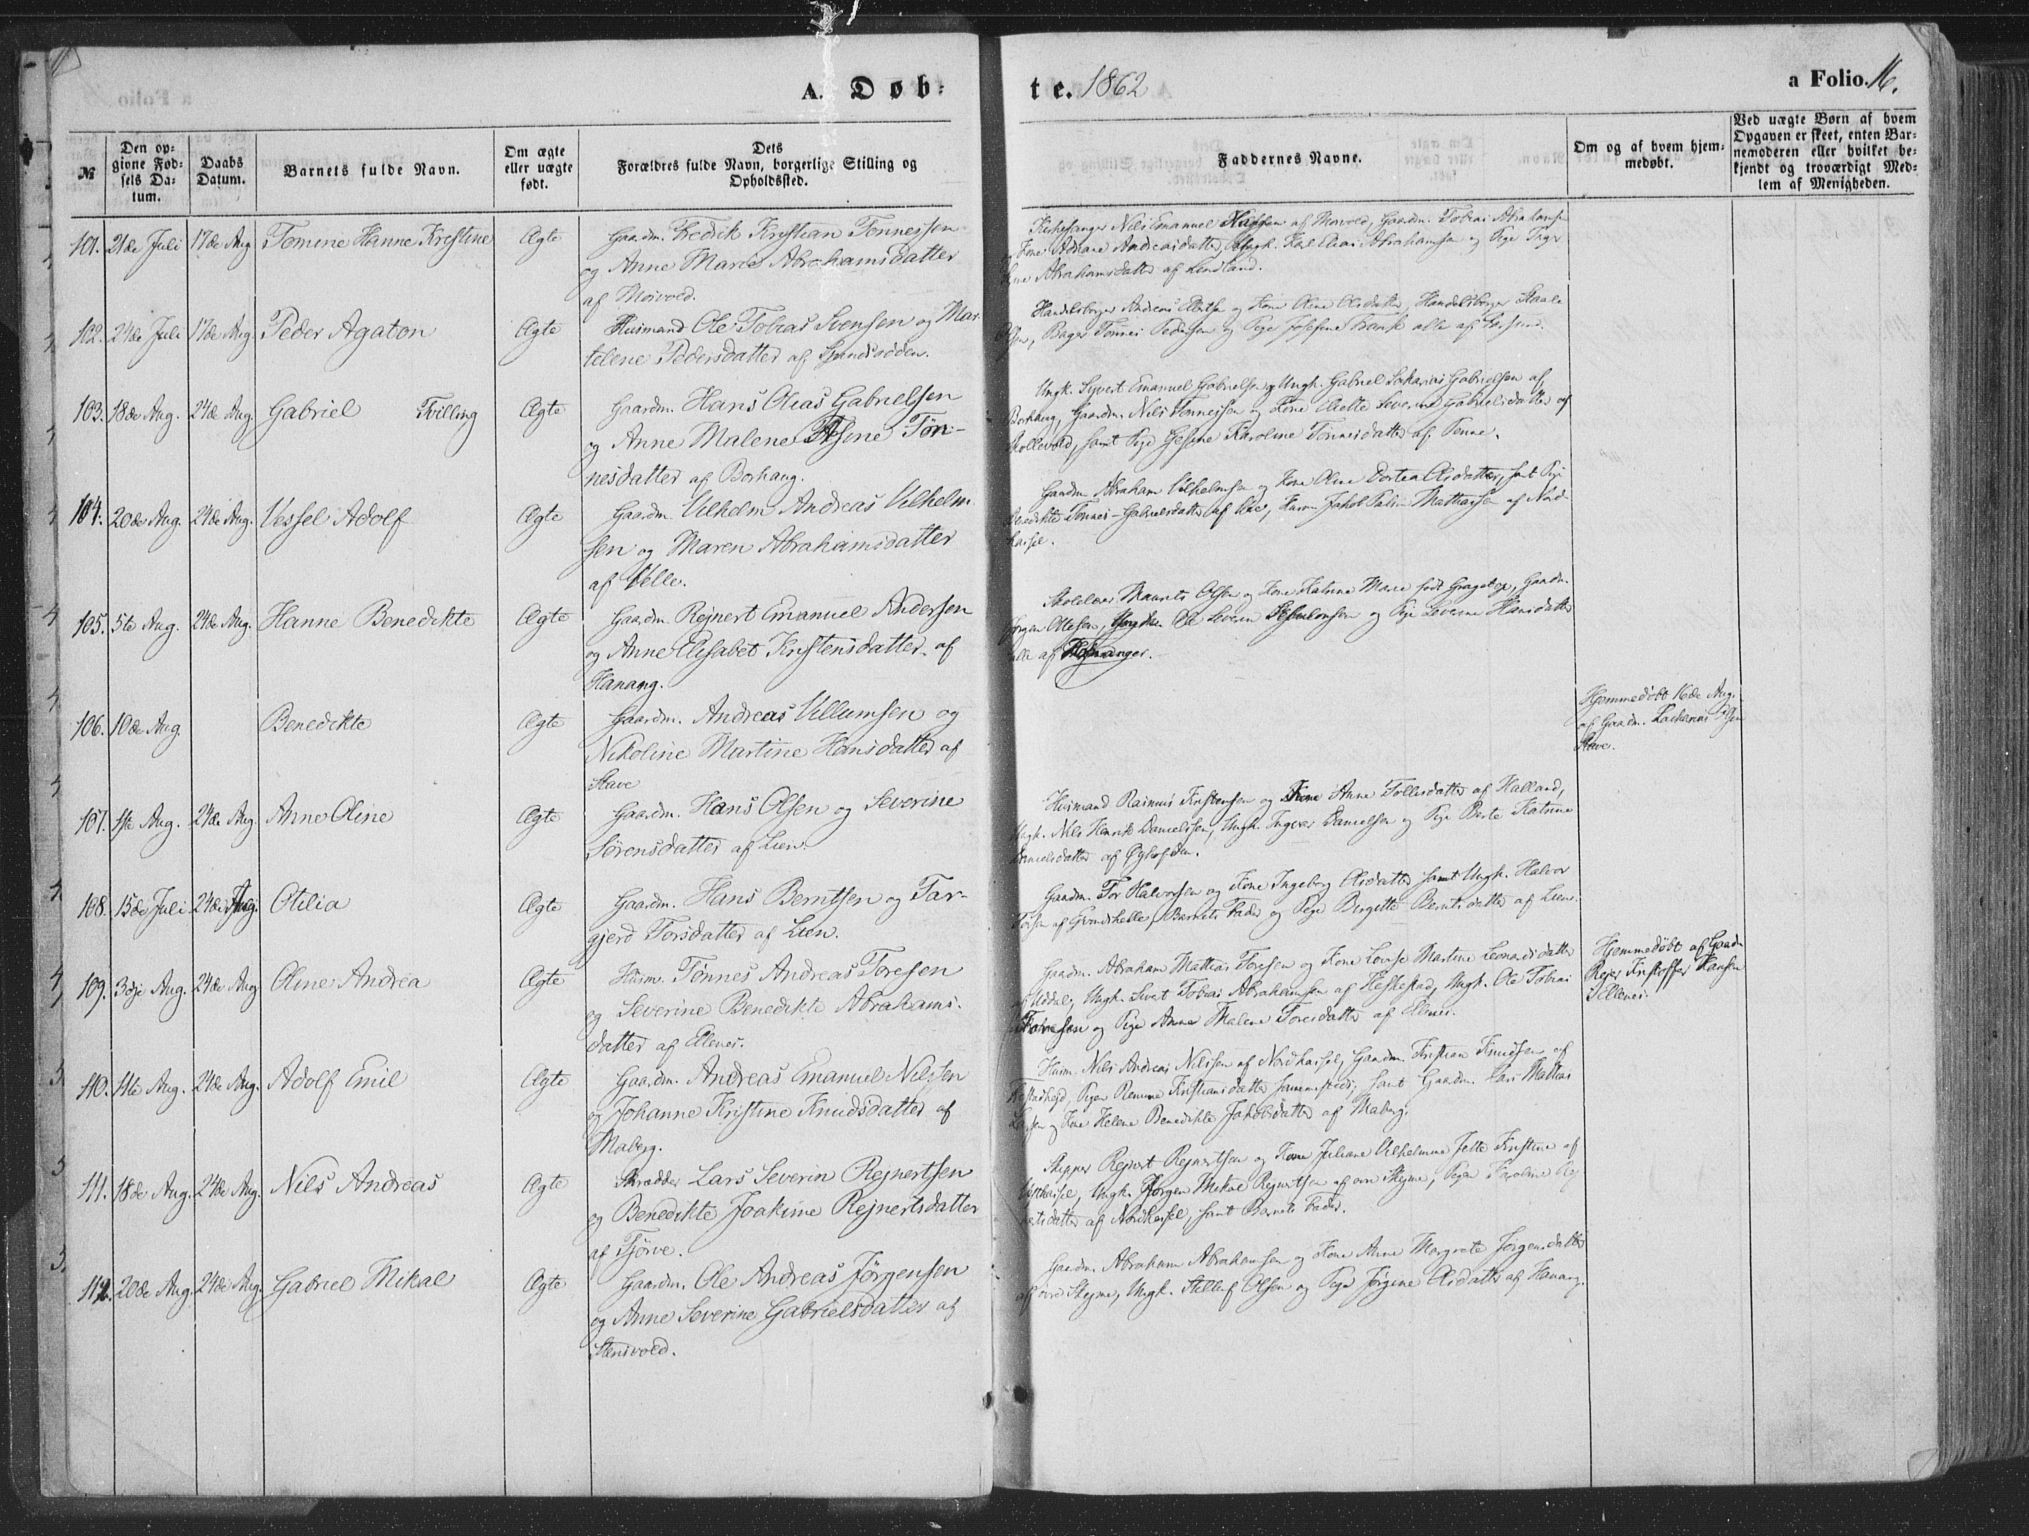 A. Døb=
te. 1862
a Folio 16.
№
Den opgivne Fødsels Datum.
Daabs Datum.
Barnets fulde Navn.
Om ægte eller uægte født.
Dets Forældres fulde Navn, borgerlige Stilling og Opholdssted.
Faddernes Navne.
Om og af hvem hjemmedøbt.
Ved uægte Børn af hvem Opgaven er skeet, enten Barnemoderen eller hvilket bekjendt og troværdigt Medlem af Menigheden.
101. 21de Juli 17de Aug Tomine Hanne Kristine Ægte Gaardm. Fredik Kristian Tønnessen
og Anne Marie Abrahamsdatter
af Moivold.
Kirkesanger Nils Emanuel af Moivold, Gaardm. Tobias Abrahamsen
og Kone Adriane Andreasdatter, Ungk. Karl Elias Abrahamsen og Pige Inger
Abrahamsdatter af Lindland.
102. 24de Juli 17de Aug Peder Agaton Ægte Husmand Ole Tobias Svensen og Mar-
telene Pedersdatter af Spindsodden.
Handelsborger Andreas og Kone Oline Olsdatter, Handelsborger Staale
Olsen, Bager Tønnes Pedersen og Pige Josefine alle af
103. 18de Aug. 24de Aug Gabriel Tvilling Ægte Gaardm. Hans Elias Gabrielsen
og Anne Malene Asine Tøn-
nesdatter af Borhaug.
Ungk. Syvert Emanuel Gabrielsen og Ungk. Gabriel Sakarias Gabrielsen af
Borhaug, Gaardm. Nils Tønnessen og Kone Elisette Severine Gabrielsdatter af
Skollevold, samt Pige Gesine Karoline Tønnesdatter af Penne.
104. 20de Aug. 24de Aug. Vessel Adolf Ægte Gaardm. Vilhelm Andreas Vilhelm-
sen og Maren Abrahamsdatter
af Velle.
Gaardm. Abraham Vilhelmsen og Kone Oline Dortea Olsdatter, samt Pige
Benedikte Tønnes-Gabrielsdatter af Huse, Husm. Jakob Palin Mathiassen af Nord-
hassel.
105. 5te Aug. 24de Aug. Hanne Benedikte Ægte Gaardm. Rejnert Emanuel Andersen
og Anne Elisabet Kristensdatter af
Hanang.
Skolelærer Maurits Olsen og Kone Katrine Marie født Gaardm.
Jørgen Ottesen, Ungk. Ole Severin og Pige Severine Hansdatter
alle af
106. 10de Aug Benedikte Ægte Gaardm. Andreas Villumsen og
Nikoline Martine Hansdatter af
Stave
Hjemmedøbt 16de Aug.
af Gaardm. Zacharias Olsen
Stave.
107. 1ste Aug. 24de Aug. Anne Oline Ægte Gaardm. Hans Olsen og Severine
Sørensdatter af Lien.
Husmand Rasmus Kristensen og Kone Anne Tollisdatter af Halland,
Ungk. Nils Henrik Danielsen, Ungk. Ingvær Danielsen og Pige Berte Katrine
Danielsdatter af
108. 15de Juli 24de Aug. Otilia Ægte Gaardm. Hans Berntsen og Tar-
gjerd Torsdatter af Lien.
Gaardm. Tor Halvorsen og Kone Ingeborg Olsdatter samt Ungk. Halvor
Torsen af Grundskelle, Barnets Fader og Pige Birgitte Berntsdatter af Lien.
109. 3dje Aug. 24de Aug Oline Andrea Ægte Husm. Tønnes Andreas Toresen
og Severine Benedikte Abrahams-
datter af Ellenes.
Gaardm. Abraham Mattias Toresen og Kone Lovise Martine Leonardsdatter
af Uddal, Ungk. Sivert Tobias Abrahamsen af Heskestad, Ungk. Ole Tobias
Toresen og Pige Anne Malene Toresdatter af Ellenes.
Hjemmedøbt af Gaardm.
Rejer Kristoffer Hansen
Ellenes.
110. 11te Aug. 24de Aug. Adolf Emil Ægte Gaardm. Andreas Emanuel Nilssen
og Johanne Kristine Knudsdatter af
Maberg.
Husm. Nils Andreas Nilssen af Nordhassel, Gaardm. Kristian Knudsen af
Pigen Remine Kristiansdatter sammesteds, samt Gaardm. Lars Mattias
Larsen og Kone Helene Benedikte Jakobsdatter af Maberg.
111. 18de Aug. 24de Aug. Nils Andreas Ægte Skrædder Lars Severin Rejnertsen
og Benedikte Joakime Rejnertsdatter
af Tjørve.
Skipper Rejnert Rejnertsen og Kone Juliane Vilhelmine Jette Kristine af
Vesthassel, Ungk. Jørgen Mikal Rejnertsen af øvre Skeime, Pigen Karoline Rej-
nertsdatter af Nordhassel, samt Barnets Fader.
112. 20de Aug. 24de Aug. Gabriel Mikal Ægte Gaardm. Ole Andreas Jørgensen
og Anne Severine Gabrielsdatter af
Stensvold.
Gaardm. Abraham Abrahamsen og Kone Anne Margrete Jørgensdatter
af øvre Skejme, Ungk. Stellef Olsen og Pige Jørgine Olsdatter af Hanang.